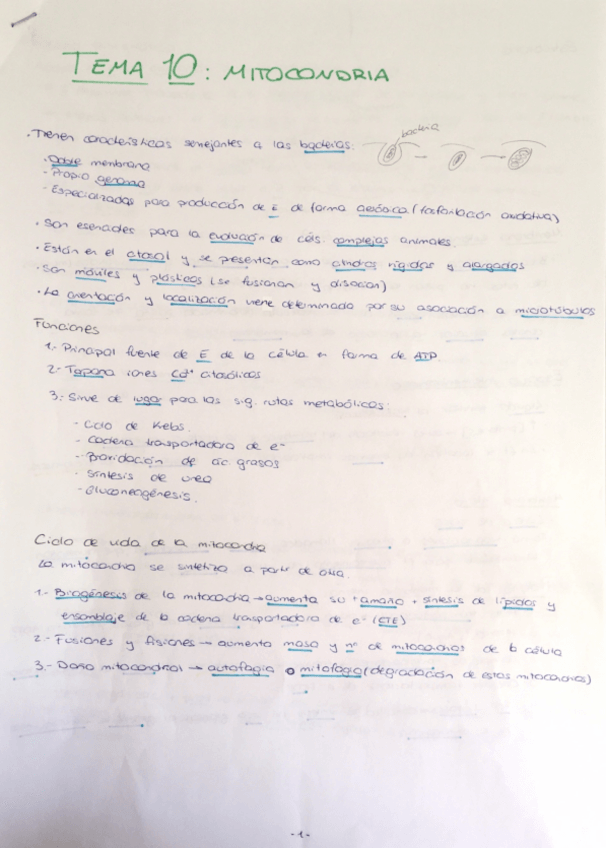 TEMA 10: MITOCONDRIA
• Tienen características semejantes a las bacterias: bacteria
• Doble membrana
• Propio genoma
- Especializadas para producción de E de forma aeróbica (fosforilación oxidativa)
• Son esenciales para la evolución de céls complejas animales.
• Están en el citosol y se presentan como cilindros rígidos y alargados
• Son móviles y plásticos (se fusionan y disocian)
• La orientación y localización viene determinado por su asociación a microtúbulos
Funciones
1.- Principal fuente de E de la célula en forma de ATP
2.- Tapona iones Ca²⁺ citosólicos
3.- Sirve de lugar para las sig. rutas metabólicas:
- Ciclo de Krebs.
- Cadena transportadora de e⁻
- βoxidación de ác grasos
- Síntesis de urea
- Gluconeogénesis.
Ciclo de vida de la mitocondria
La mitocondria se sintetiza a partir de otra.
1.- Biogénesis de la mitocondria → aumenta su tamaño + síntesis de lípidos y
ensamblaje de la cadena transportadora de e⁻ (CTE)
2.- Fusiones y fisiones → aumenta masa y nº de mitocondrias de la célula
3.- Daño mitocondrial → autofagia o mitofagia (degradación de estas mitocondrias)
-1-